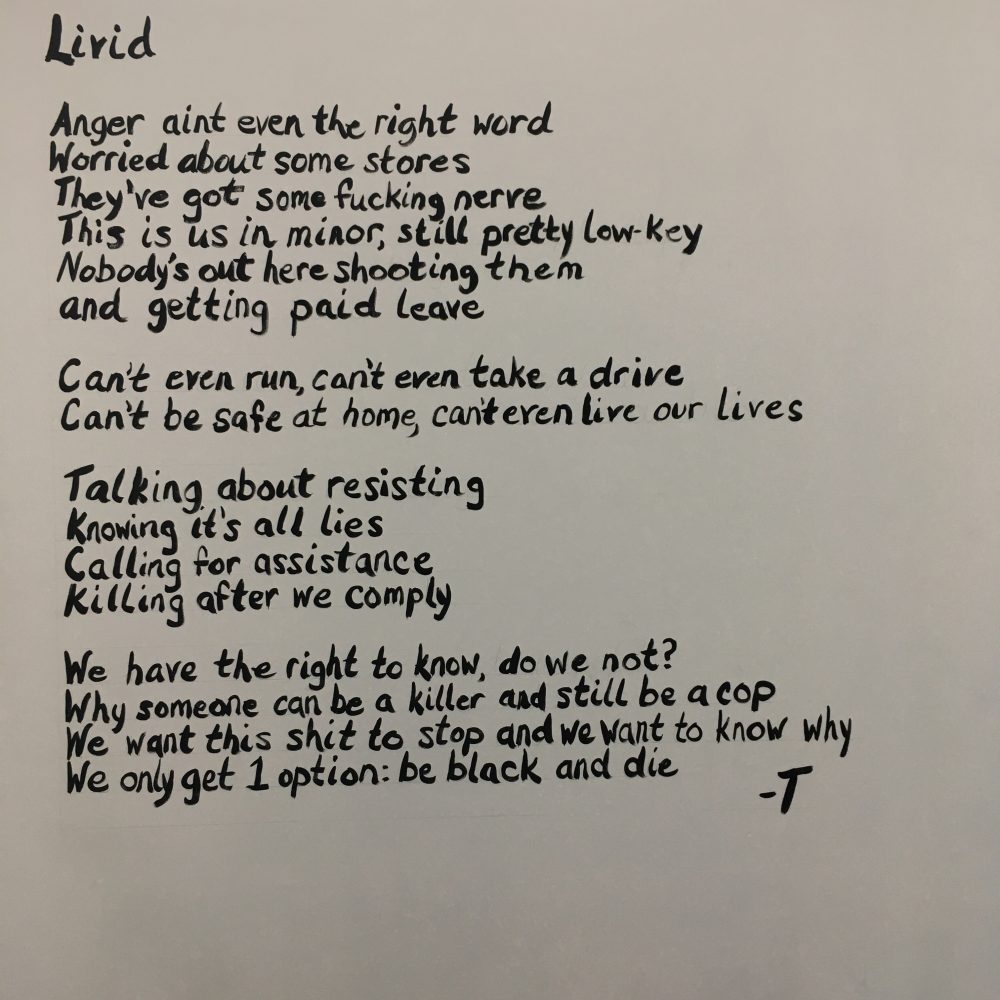 Livid
Anger aint even the right word
Worried about some stores
They've got some fucking nerve
This is us in minor, still pretty low-key
Nobody's out here shooting them
and getting paid leave
Can't even run, can't even take a drive
Can't be safe at home, can't even live our lives
Talking about resisting
Knowing it's all lies
Calling for assistance
Killing after we comply
We have the right to know, do we not?
Why someone can be a killer and still be a cop
We want this shit to stop and we want to know why
We only get 1 option: be black and die
-T